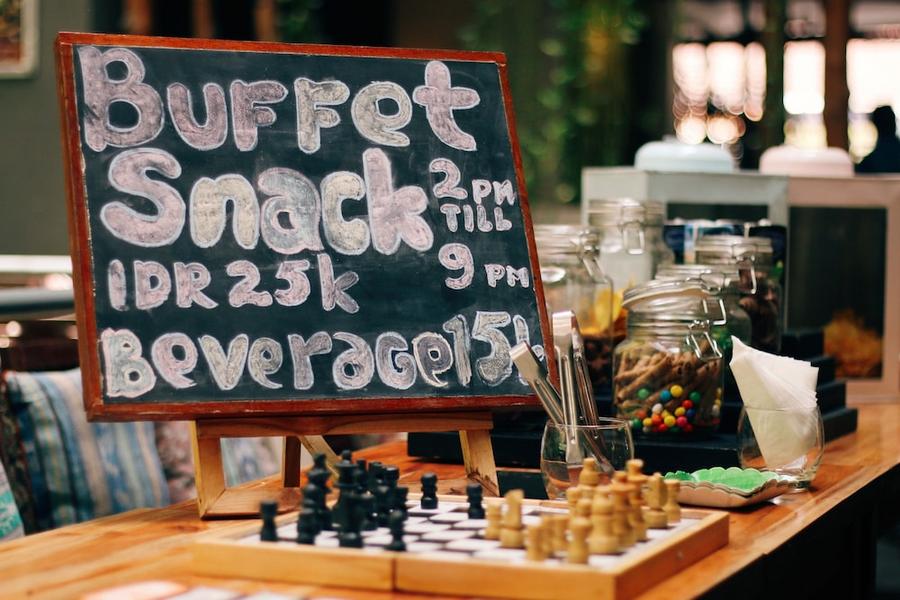 Buffet
Snack 2 PM
TILL
9 PM
IDR 25k
Beverage 15k